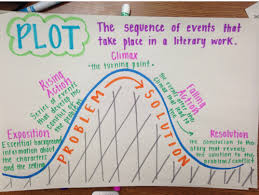 PLOT
The sequence of events that
take place in a literary work.
Climax
"the turning point"
Rising
Action
Series of events
that develop the
conflict of the
PROBLEM
SOLUTION
Falling
Action
the events after
Exposition
Essential background
information about
the characters
and the setting
Resolution
the conclusion to the
story that reveals
the solution to the
problem/conflict